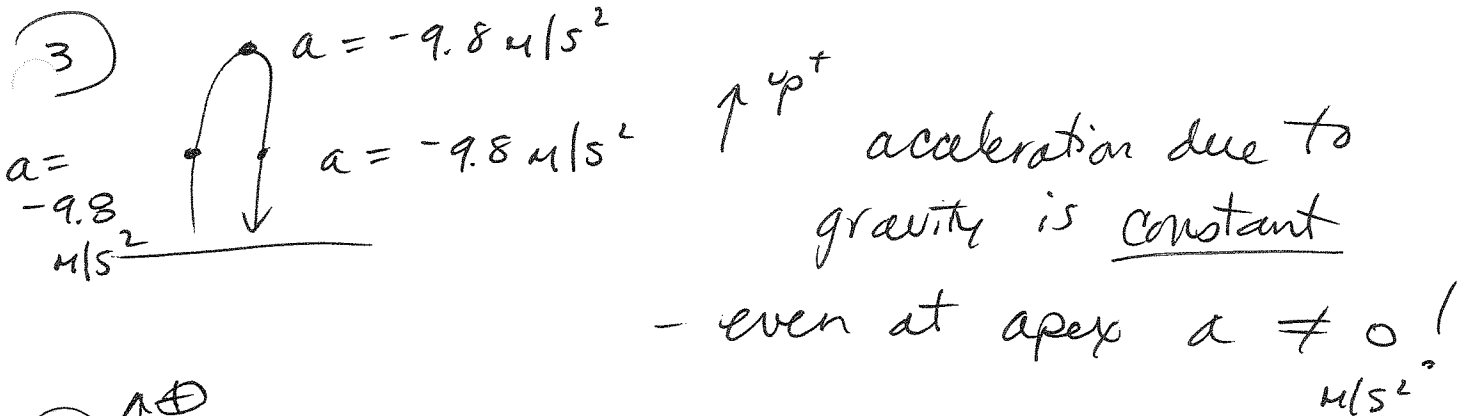 3
a = -9.8 m/s²
↑ up +
a =
-9.8
m/s²
a = -9.8 m/s²
acceleration due to
gravity is constant
- even at apex a ≠ 0!
m/s²
↑⊕